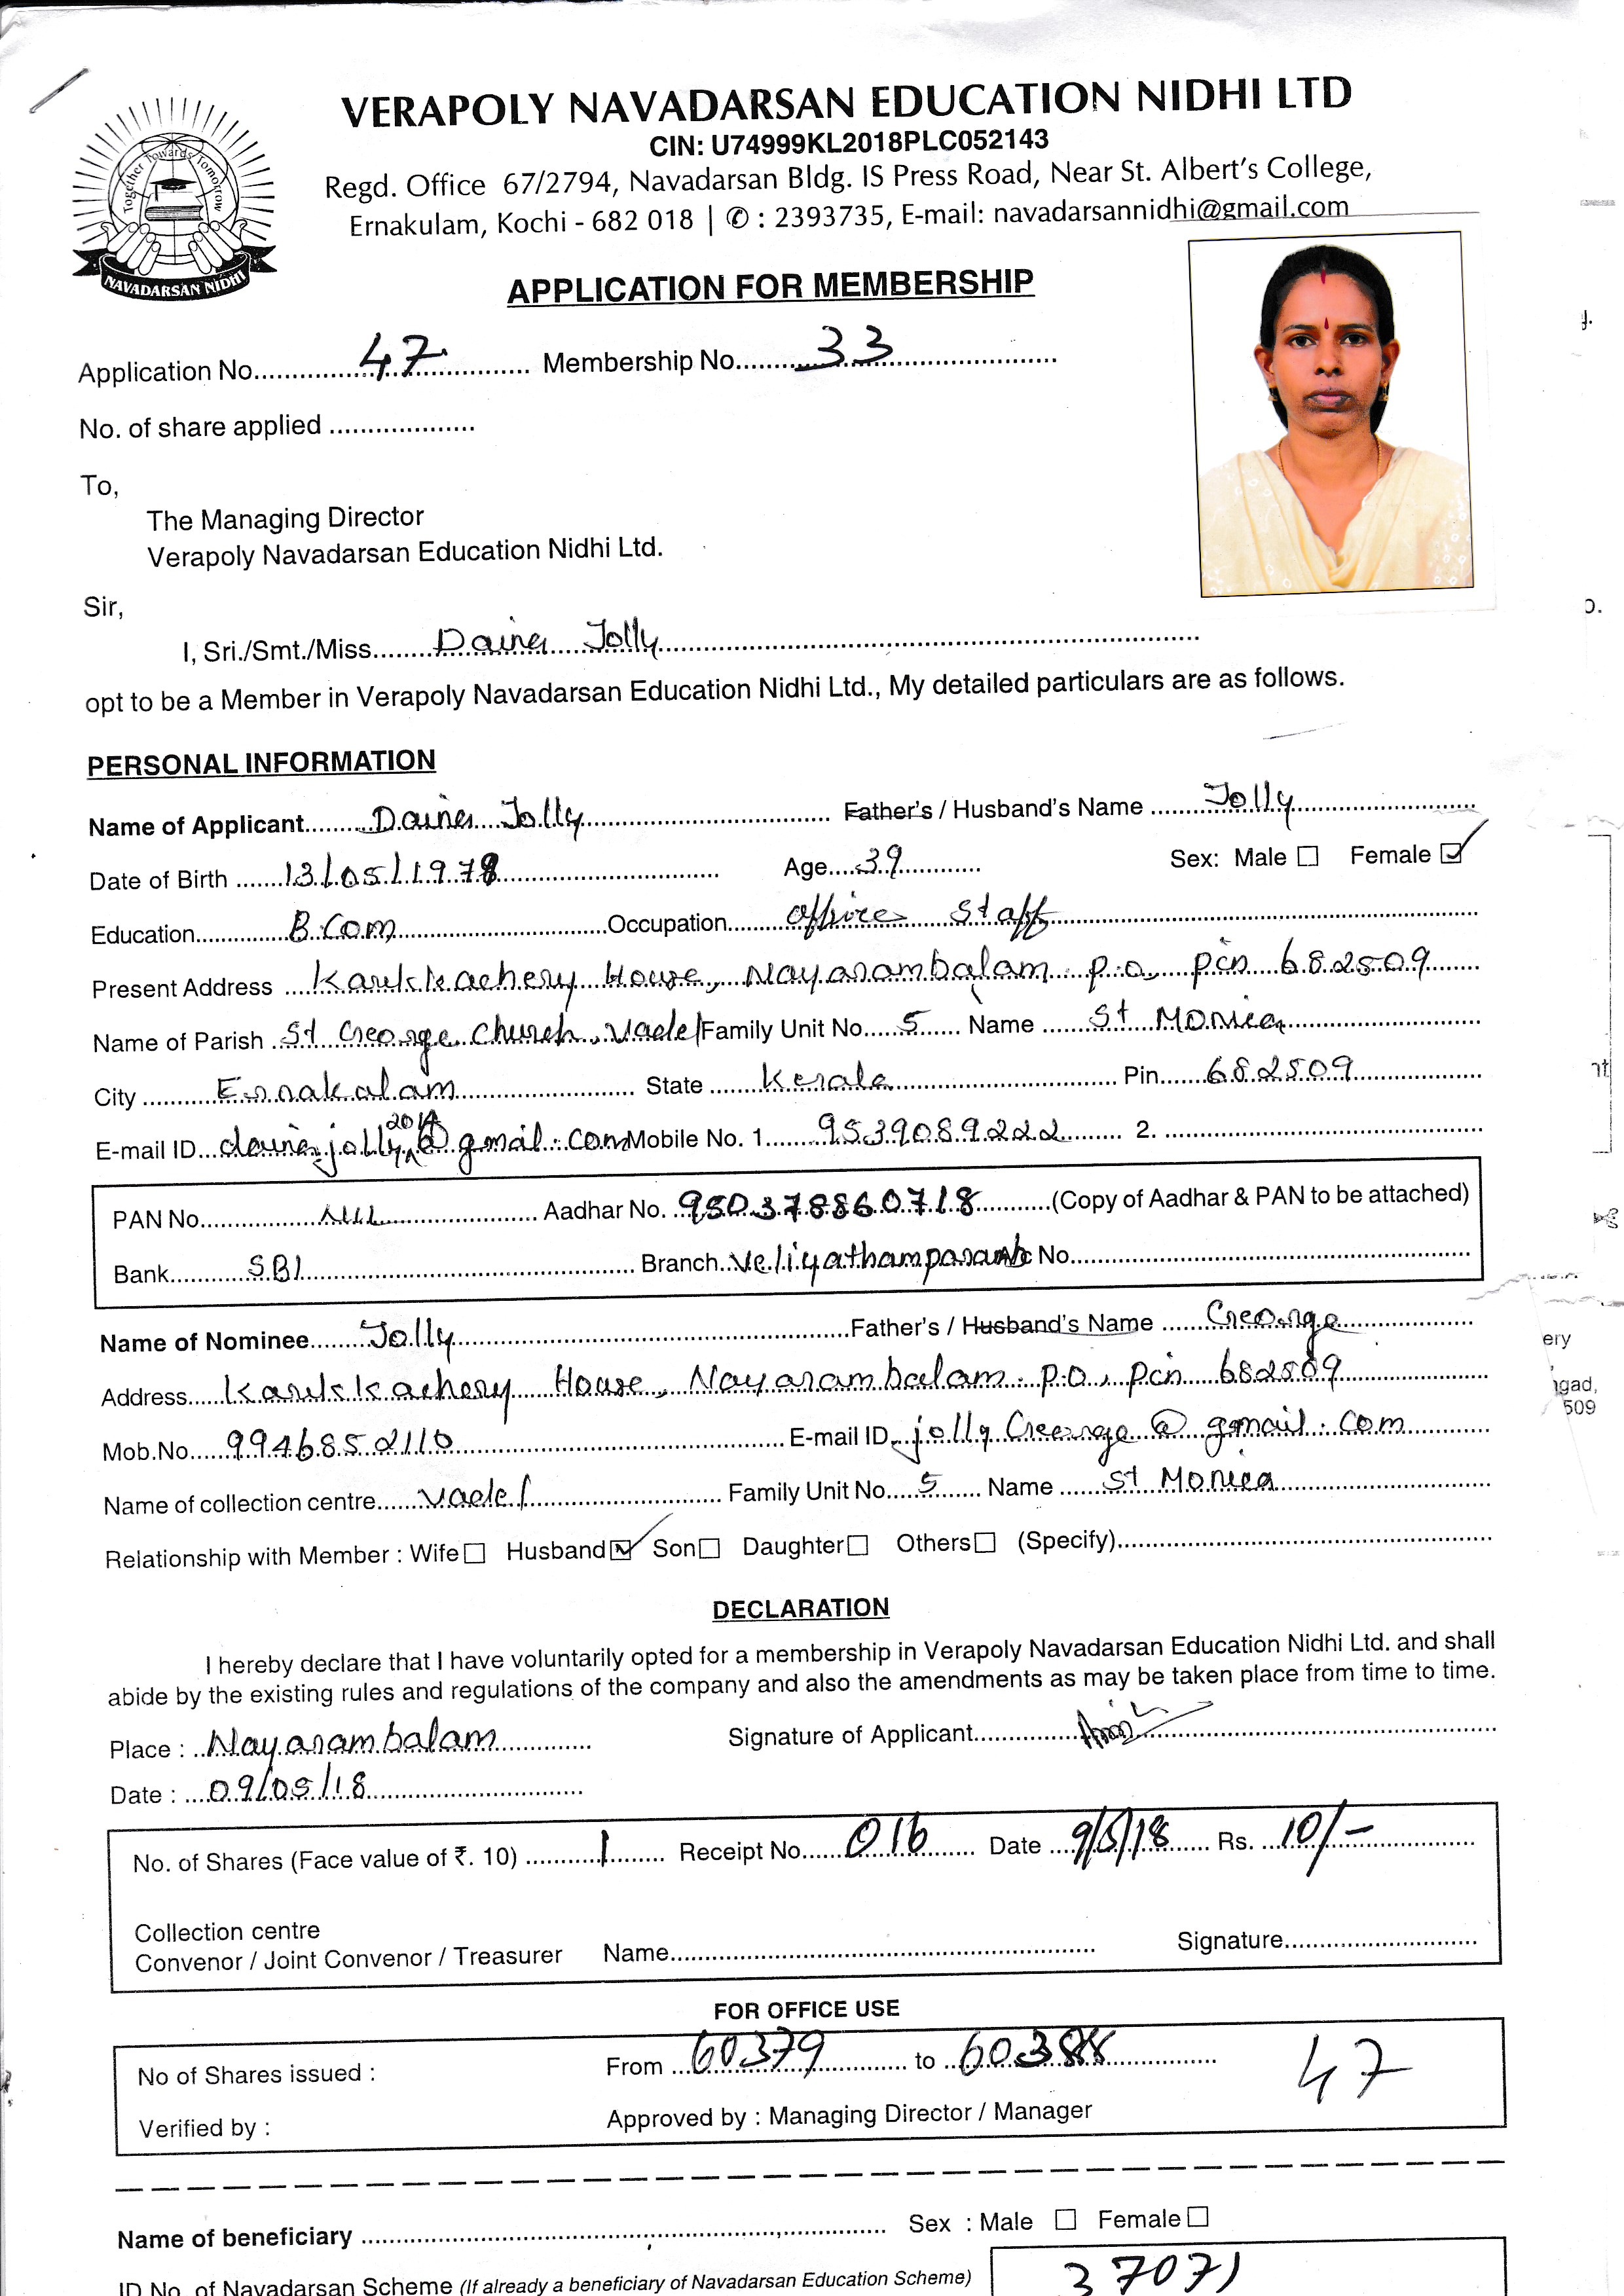 VERAPOLY NAVADARSAN EDUCATION NIDHI LTD
CIN: U74999KL2018PLC052143
Regd. Office 67/2794, Navadarsan Bldg. IS Press Road, Near St. Albert's College,
Ernakulam, Kochi - 682 018 | ✆ : 2393735, E-mail: navadarsannidhi@gmail.com
Together Towards Tomorrow
NAVADARSAN NIDHI
APPLICATION FOR MEMBERSHIP
Application No. 47 Membership No. 33
No. of share applied
To,
The Managing Director
Verapoly Navadarsan Education Nidhi Ltd.
Sir,
I, Sri./Smt./Miss Daina Jolly
opt to be a Member in Verapoly Navadarsan Education Nidhi Ltd., My detailed particulars are as follows.
PERSONAL INFORMATION
Name of Applicant Daina Jolly Father's / Husband's Name Jolly
Date of Birth 13/05/1978 Age 39 Sex: Male ☐ Female ☑
Education B.Com Occupation office staff
Present Address Karukkachery House, Nayarambalam p.o, pin 682509
Name of Parish St George Church, Vadel Family Unit No. 5 Name St Monica
City Ernakalam State Kerala Pin 682509
E-mail ID dainajolly2014@gmail.com Mobile No. 1. 9539089222 2.
PAN No. NIL Aadhar No. 950378860718 (Copy of Aadhar & PAN to be attached)
Bank SBI Branch Veliyathamparamb A/c No.
Name of Nominee Jolly Father's / Husband's Name George
Address Karukkachery House, Nayarambalam p.o, pin 682509
Mob.No. 9946852110 E-mail ID jollyGeorge@gmail.com
Name of collection centre Vadel Family Unit No. 5 Name St Monica
Relationship with Member : Wife ☐ Husband ☑ Son ☐ Daughter ☐ Others ☐ (Specify)
DECLARATION
I hereby declare that I have voluntarily opted for a membership in Verapoly Navadarsan Education Nidhi Ltd. and shall
abide by the existing rules and regulations of the company and also the amendments as may be taken place from time to time.
Place : Nayarambalam Signature of Applicant
Date : 09/05/18
No. of Shares (Face value of ₹. 10) 1 Receipt No. 016 Date 9/5/18 Rs. 10/-
Collection centre
Convenor / Joint Convenor / Treasurer Name Signature
FOR OFFICE USE
No of Shares issued : From 60379 to 60388 47
Verified by : Approved by : Managing Director / Manager
Name of beneficiary Sex : Male ☐ Female ☐
ID No. of Navadarsan Scheme (If already a beneficiary of Navadarsan Education Scheme) 37071
ery
gad,
509